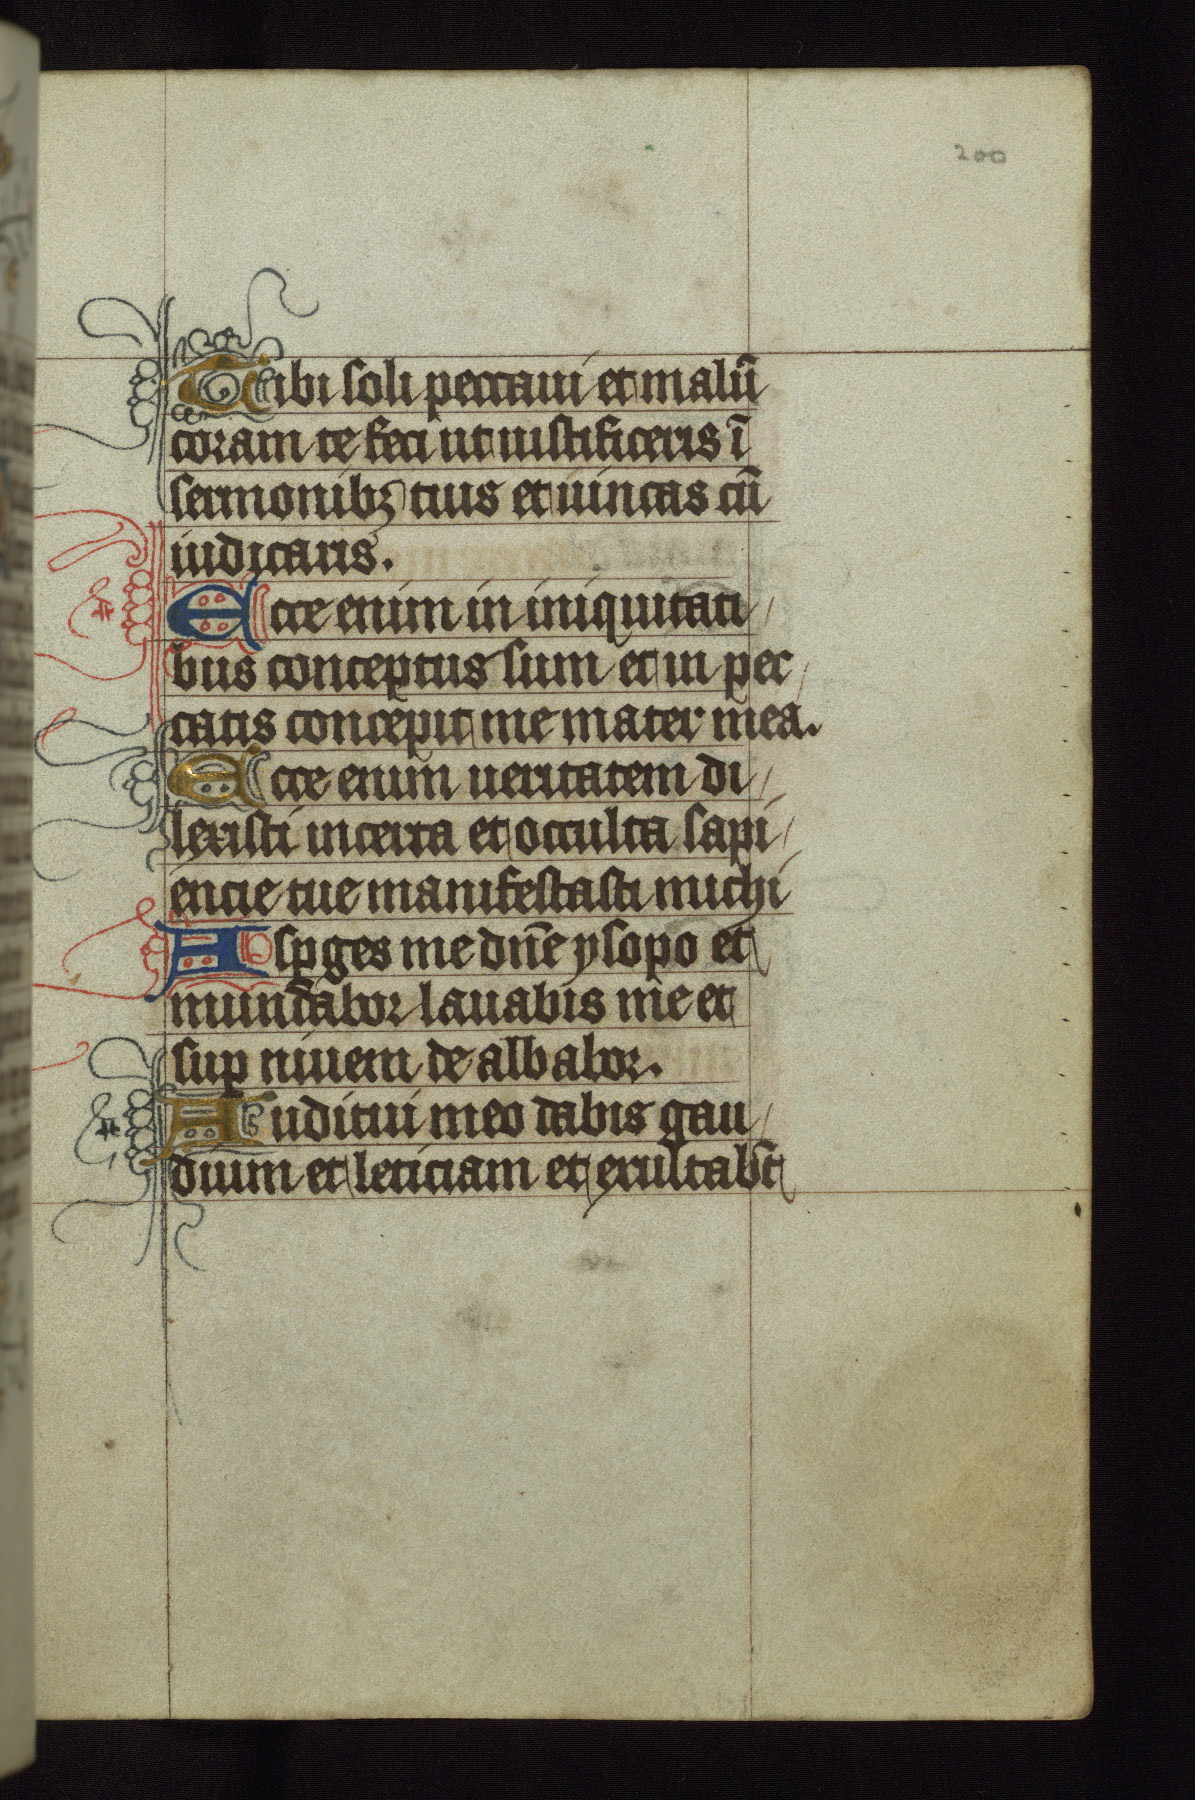 200
Tibi soli peccaui et malū
coram te feci ut iustificeris ī
sermonibꝫ tuis et uincas cū
iudicaris.
Ecce enim in iniquitati
bus conceptus sum et in pec
catis concepit me mater mea.
Ecce enim ueritatem di
lexisti incerta et occulta sapi
encie tue manifestasti michi
Asꝑges me dn̄e ysopo et
mundabor lauabis me et
suꝑ niuem de albabor.
Auditui meo dabis gau
dium et leticiam et exultabūt